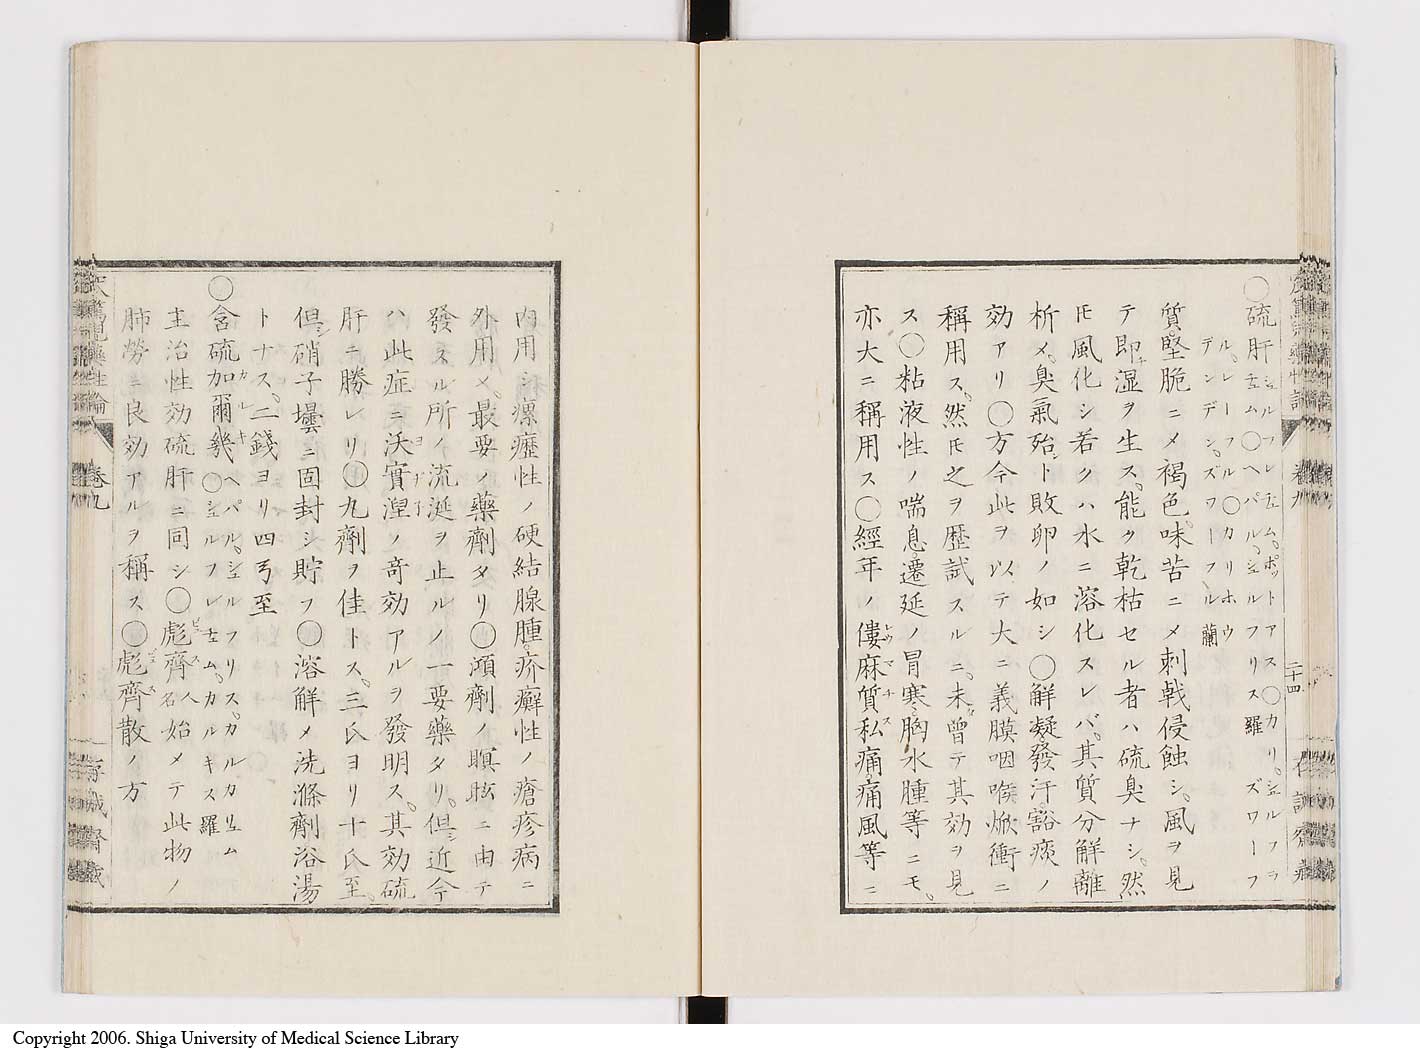 ○硫肝 シュルフレチュム。ポットアス○カリ。シュルフラ
チュム○ヘパル。シュルフリス 羅 ズワーフ
ル。レーフル○カリホウ
デンデ。ズワーフル 蘭
質。堅脆ニ〆褐色。味苦ニ〆刺戟侵蝕シ。風ヲ見
テ即湿ヲ生ス。能ク乾枯セル者ハ硫臭ナシ。然
𪜈風化シ若クハ水ニ溶化スレバ。其質分解離
析〆。臭氣殆ト敗卵ノ如シ○解凝發汗。豁痰ノ
効アリ○方今此ヲ以テ大ニ義膜咽喉焮衝ニ
稱用ス。然𪜈之ヲ歴試スルニ。未曾テ其効ヲ見
ス○粘液性ノ喘息。遷延ノ冒寒。胸水腫等ニモ。
亦大ニ稱用ス○經年ノ僂麻質私痛。痛風等ニ
卷九
二十四
内用シ。瘰癧性ノ硬結腺腫。疥癬性ノ瘡疹病ニ
外用〆。最要ノ藥劑タリ○澒劑ノ瞑眩ニ由テ
發スル所ノ流涎ヲ止ルノ一要藥タリ。但シ近今
ハ此症ニ沃實涅ノ奇効アルヲ發明ス。其効硫
肝ニ勝レリ○丸劑ヲ佳トス。三氏ヨリ十氏至。
但シ硝子壜ニ固封シ貯フ○溶解〆洗滌劑浴湯
トナス。二錢ヨリ四弓至
○含硫加爾幾 ヘパル。シュルフリス。カルカリュム
○シュルフレチュム。カルキス 羅
主治性効硫肝ニ同シ○彪齊 人名 始メテ此物ノ
肺勞ニ良効アルヲ稱ス○彪齊散ノ方
卷九